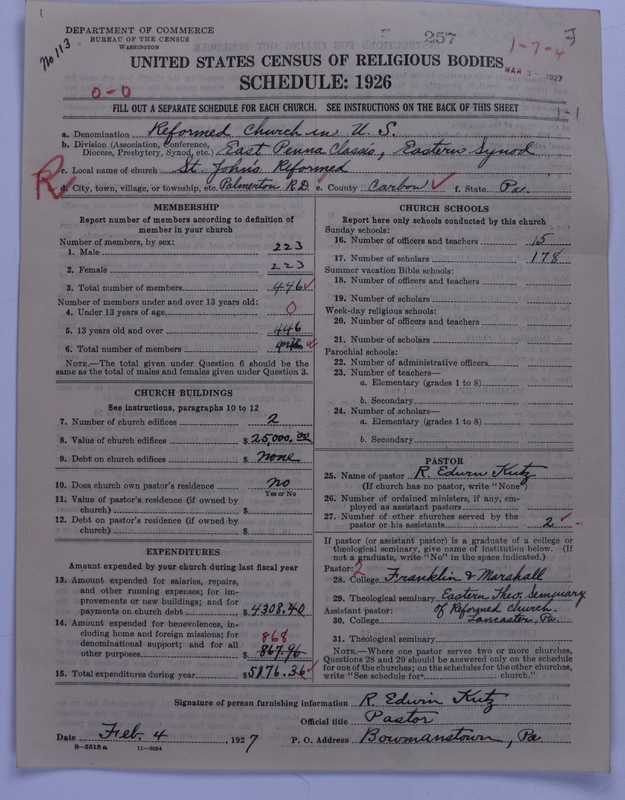 DEPARTMENT OF COMMERCE
BUREAU OF THE CENSUS
WASHINGTON
No 113
257
1-7-4
MAR 3 - 1927
UNITED STATES CENSUS OF RELIGIOUS BODIES
SCHEDULE: 1926
0-0
1-1
FILL OUT A SEPARATE SCHEDULE FOR EACH CHURCH. SEE INSTRUCTIONS ON THE BACK OF THIS SHEET
a. Denomination Reformed Church in U. S.
b. Division (Association, Conference, Diocese, Presbytery, Synod, etc.) East Penna Classis, Eastern Synod
c. Local name of church St John's Reformed
R
d. City, town, village, or township, etc. Palmerton R.D. e. County Carbon f. State Pa.
MEMBERSHIP
Report number of members according to definition of member in your church
Number of members, by sex:
1. Male 223
2. Female 223
3. Total number of members 446
Number of members under and over 13 years old:
4. Under 13 years of age 0
5. 13 years old and over 446
6. Total number of members 446
NOTE.—The total given under Question 6 should be the same as the total of males and females given under Question 3.
CHURCH BUILDINGS
See instructions, paragraphs 10 to 12
7. Number of church edifices 2
8. Value of church edifices $25,000.00
9. Debt on church edifices $ None
10. Does church own pastor's residence No
Yes or No
11. Value of pastor's residence (if owned by church) $
12. Debt on pastor's residence (if owned by church) $
EXPENDITURES
Amount expended by church during last fiscal year
13. Amount expended for salaries, repairs, and other running expenses; for improvements or new buildings; and for payments on church debt $4308.40
14. Amount expended for benevolences, including home and foreign missions; for denominational support; and for all other purposes $ 868 867.96
15. Total expenditures during year $5176.36
CHURCH SCHOOLS
Report here only schools conducted by this church
Sunday schools:
16. Number of officers and teachers 15
17. Number of scholars 178
Summer vacation Bible schools:
18. Number of officers and teachers
19. Number of scholars
Week-day religious schools:
20. Number of officers and teachers
21. Number of scholars
Parochial schools:
22. Number of administrative officers
23. Number of teachers—
a. Elementary (grades 1 to 8)
b. Secondary
24. Number of scholars—
a. Elementary (grades 1 to 8)
b. Secondary
PASTOR
25. Name of pastor R. Edwin Kutz
(If church has no pastor, write "None")
26. Number of ordained ministers, if any, employed as assistant pastors
27. Number of other churches served by the pastor or his assistants 2
If pastor (or assistant pastor) is a graduate of a college or theological seminary, give name of institution below. (If not a graduate, write "No" in the space indicated.)
Pastor: 2
28. College Franklin & Marshall
29. Theological seminary Eastern Theo. Seminary
Assistant pastor: of Reformed Church.
30. College Lancaster, Pa.
31. Theological seminary
NOTE.—Where one pastor serves two or more churches, Questions 28 and 29 should be answered only on the schedule for one of the churches; on the schedules for the other churches, write "See schedule for church."
Signature of person furnishing information R. Edwin Kutz
Official title Pastor
Date Feb. 4, 1927
P. O. Address Bowmanstown, Pa
8—5518a 11—9064